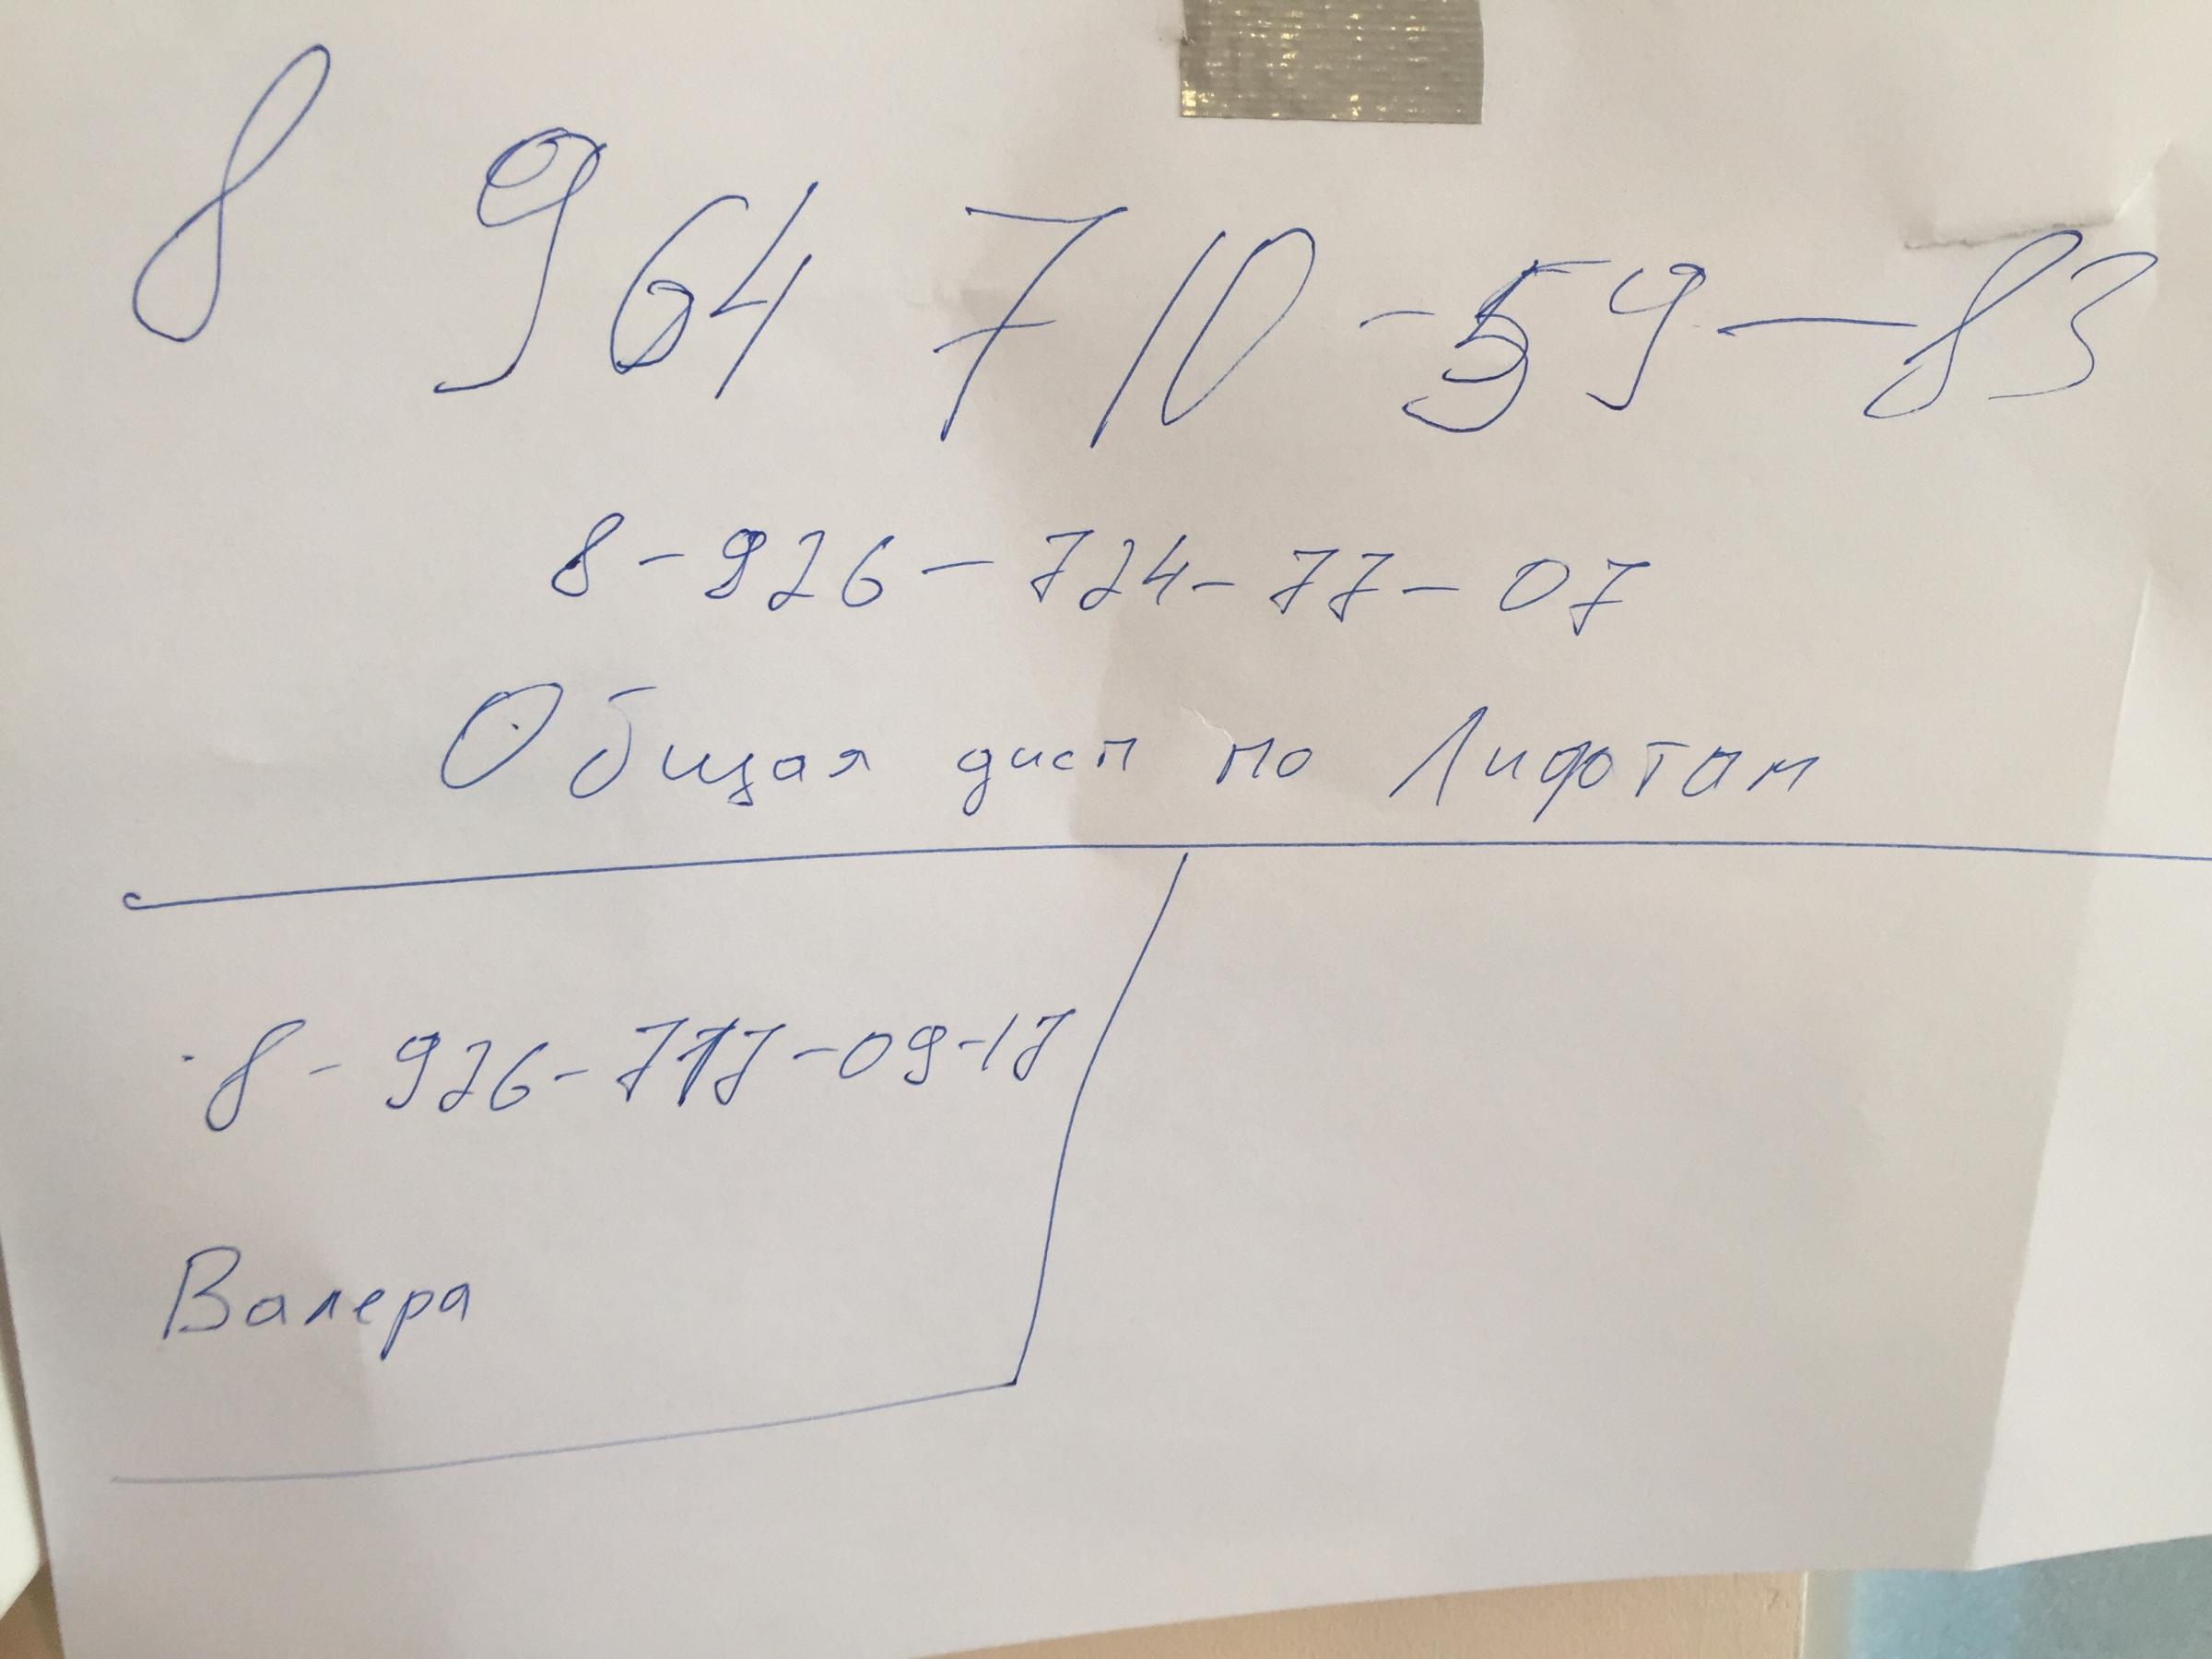 8 964 710-59-83
8-926-724-77-07
Общая дисп по Лифотам
8-926-717-09-17
Валера